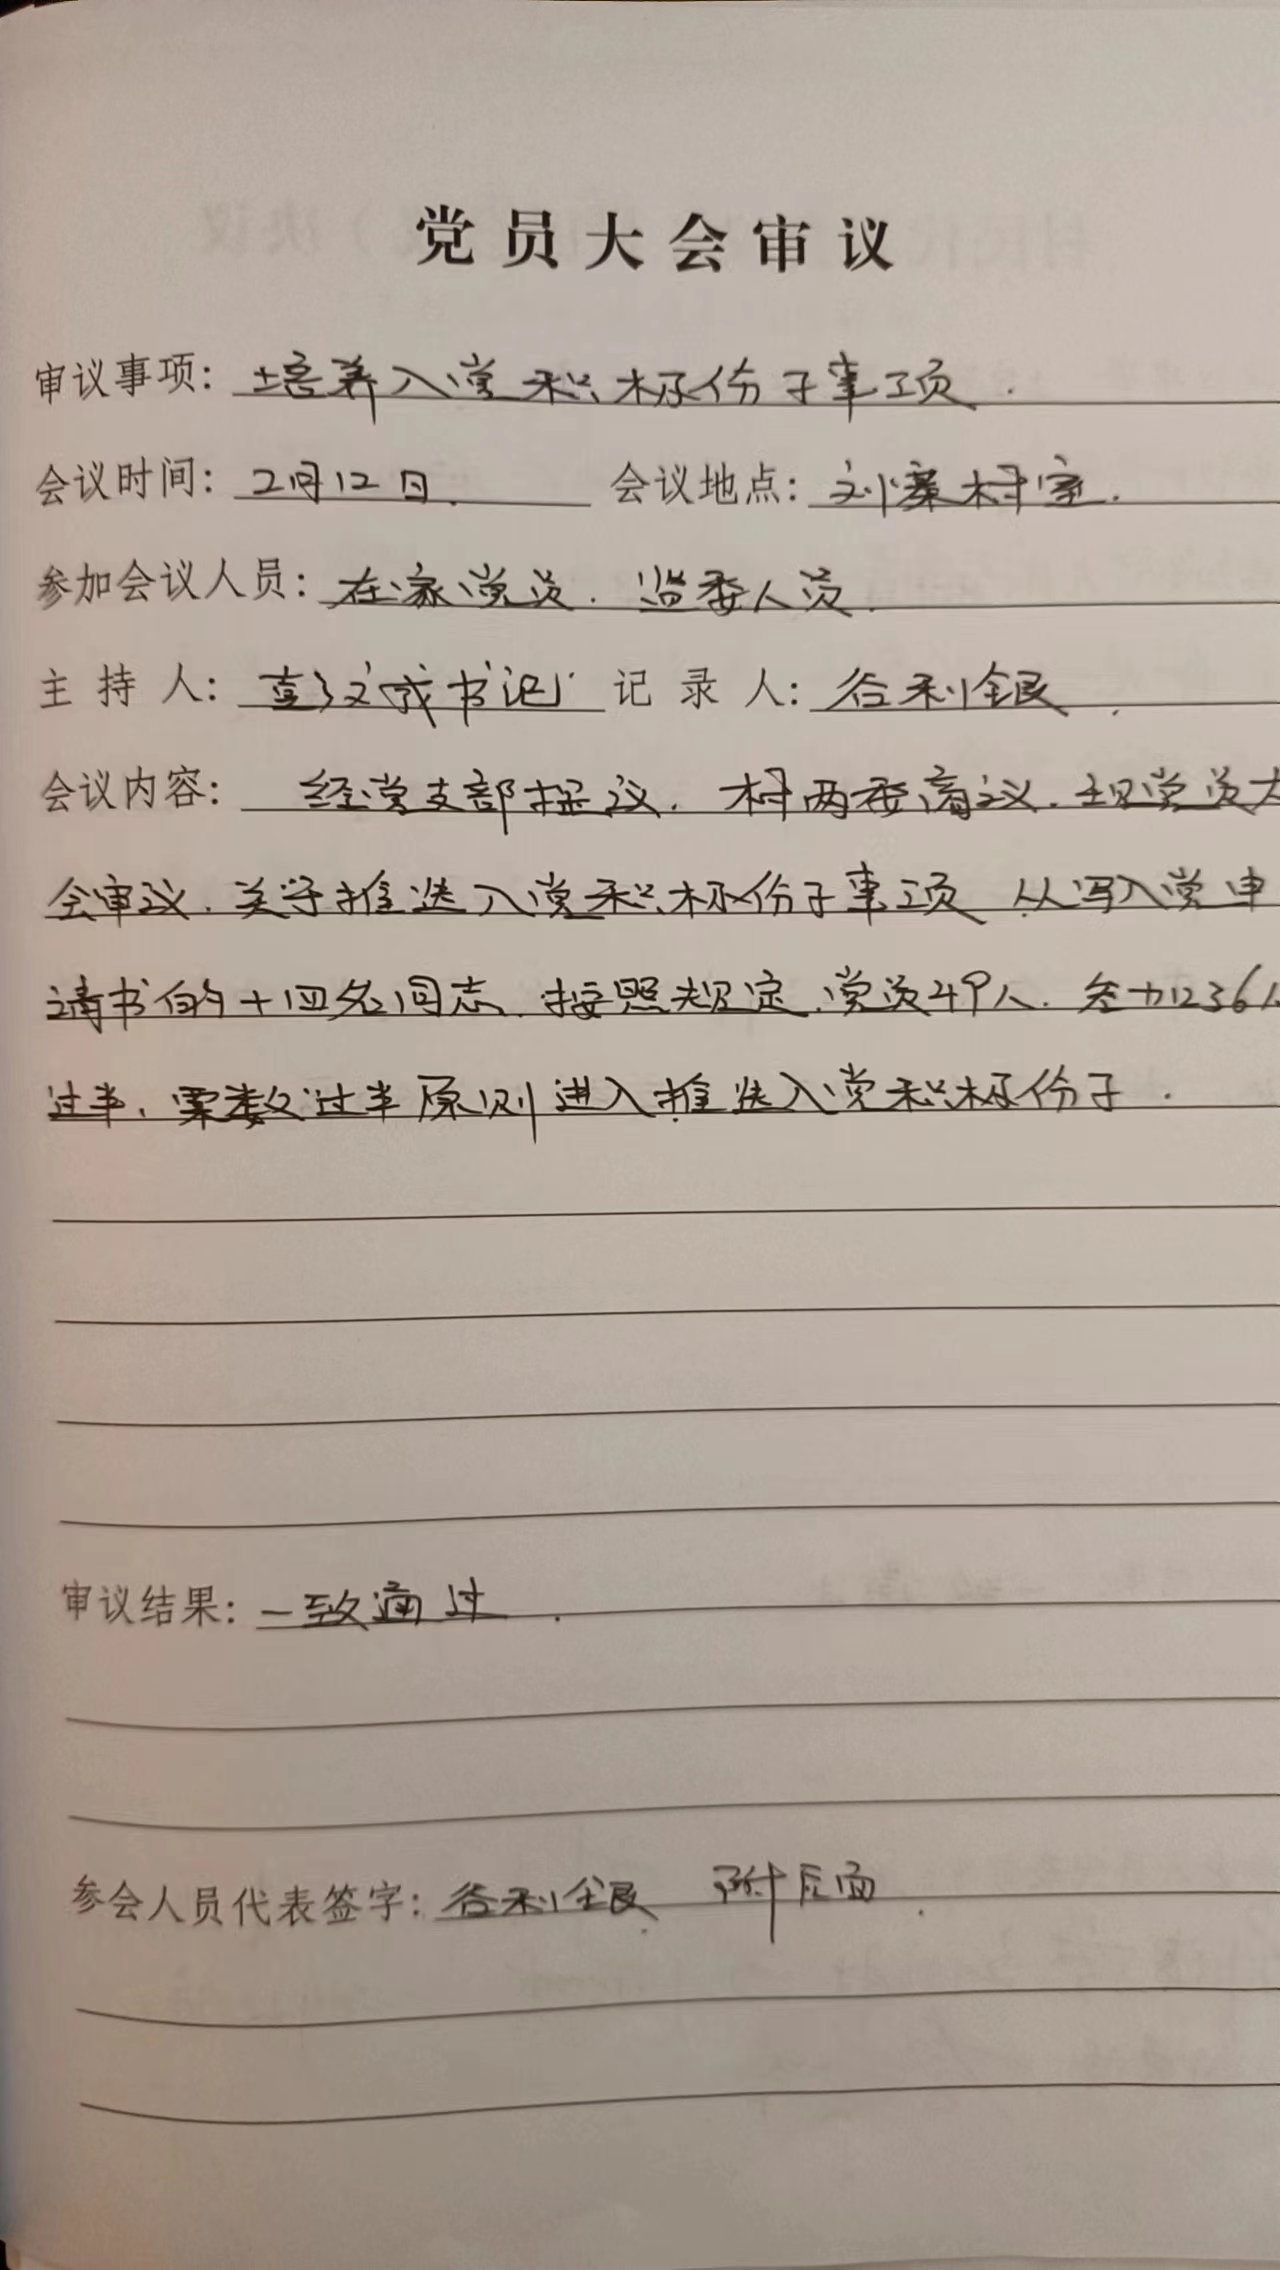 党员大会审议
审议事项：培养入党积极份子事项.
会议时间：2月12日. 会议地点：刘寨村室.
参加会议人员：在家党员. 监委人员.
主持人：彭文成书记 记录人：谷利银.
会议内容：经党支部提议. 村两委商议. 现党员大
会审议. 关于推选入党积极份子事项 从写入党申
请书的十四名同志. 按照规定. 党员49人. 参加236人
过半. 票数过半原则进入推选入党积极份子.
审议结果：一致通过.
参会人员代表签字：谷利银. 附后面.